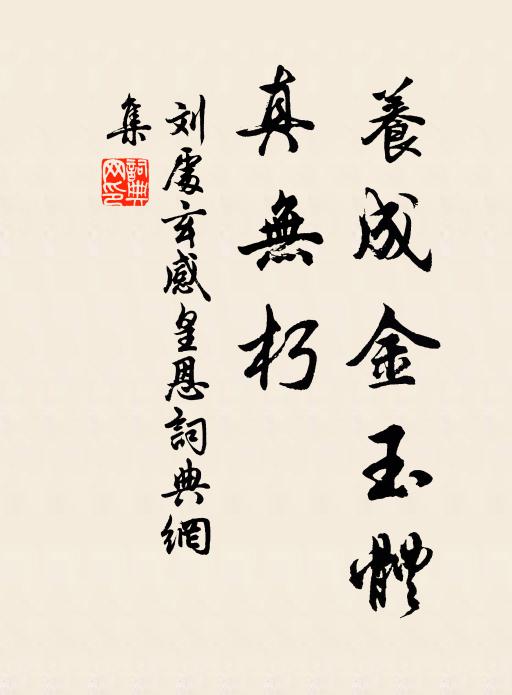 養成金玉體
真無朽
刘處玄感皇恩詞典網
集
詞典
网印